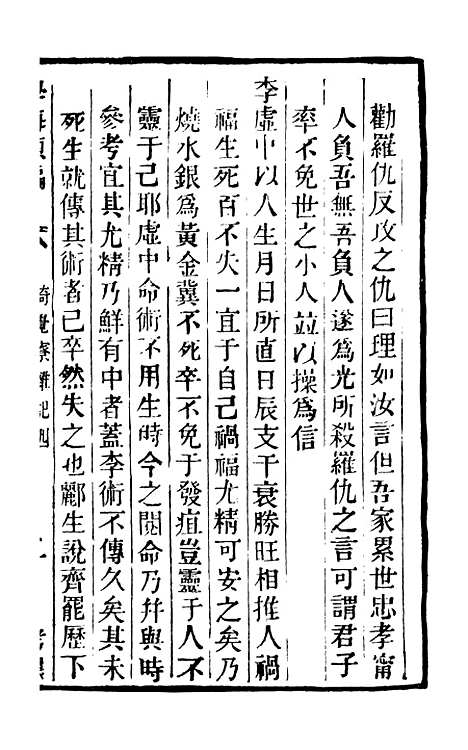 勸羅仇反攻之仇曰理如汝言但吾家累世忠孝甯
人負吾無吾負人遂爲光所殺羅仇之言可謂君子
率不免世之小人並以操爲信
李虛中以人生月日所直日辰支干衰勝旺相推人禍
福生死百不失一直于自己禍福尤精可安之矣乃
燒水銀爲黃金冀不死卒不免于發疽豈靈于人不
靈于己耶虛中命術不用生時今之閱命乃幷與時
參考宜其尤精乃鮮有中者蓋李術不傳久矣其未
死生就傳其術者已卒然失之也酈生說齊罷歷下
猗覺寮雜記四